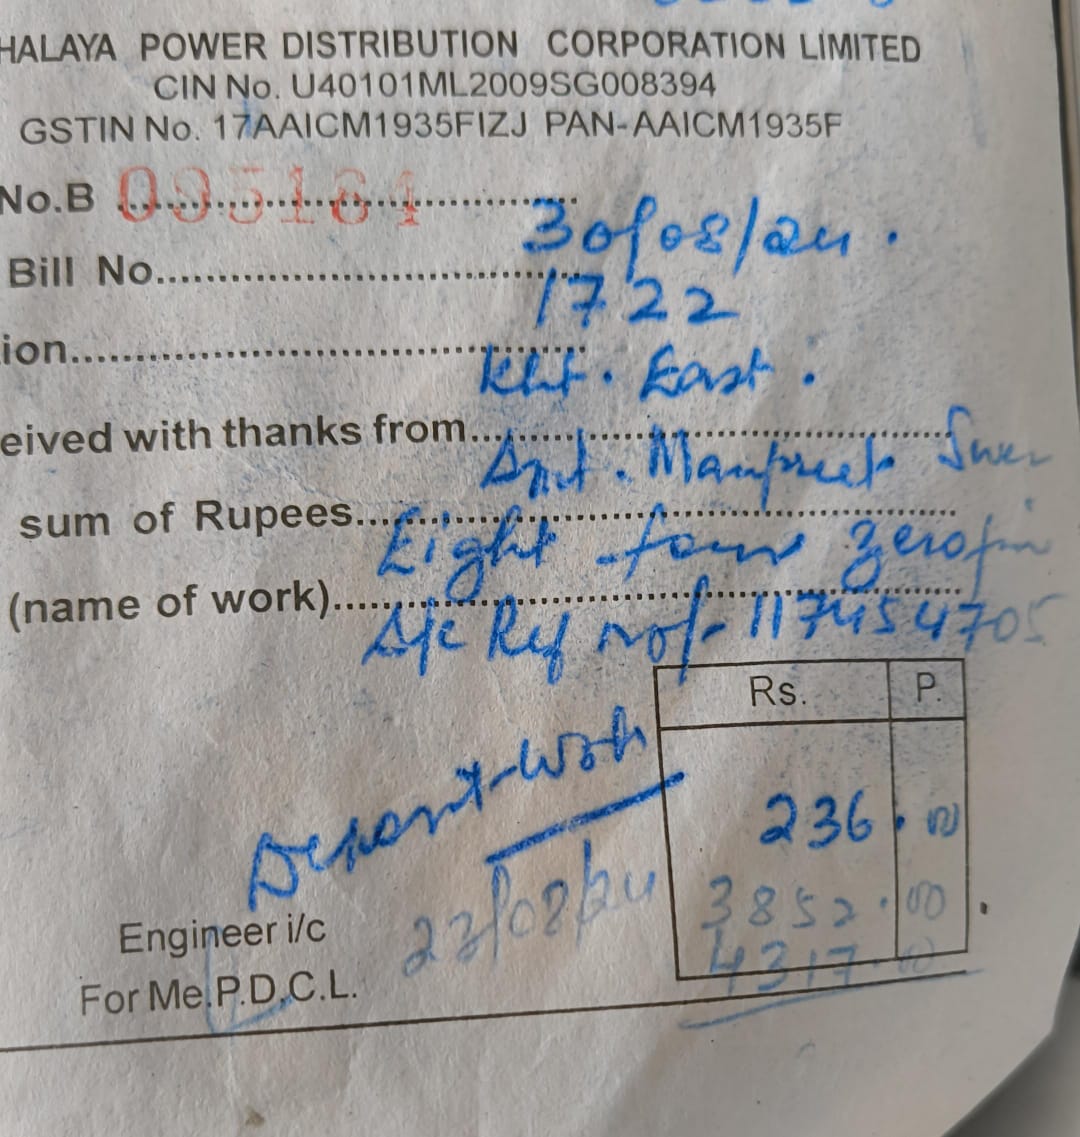 HALAYA POWER DISTRIBUTION CORPORATION LIMITED
CIN No. U40101ML2009SG008394
GSTIN No. 17AAICM1935FIZJ PAN-AAICM1935F
No.B 095164
30/08/24.
Bill No.
1722
ion
East.
eived with thanks from
Manpreet
sum of Rupees
Eight four zero
(name of work)
Ref no/- 117454705
Rs. P.
236.00
3852.00
4317.00
Deposit-Work
22/08/24
Engineer i/c
For Me.P.D.C.L.